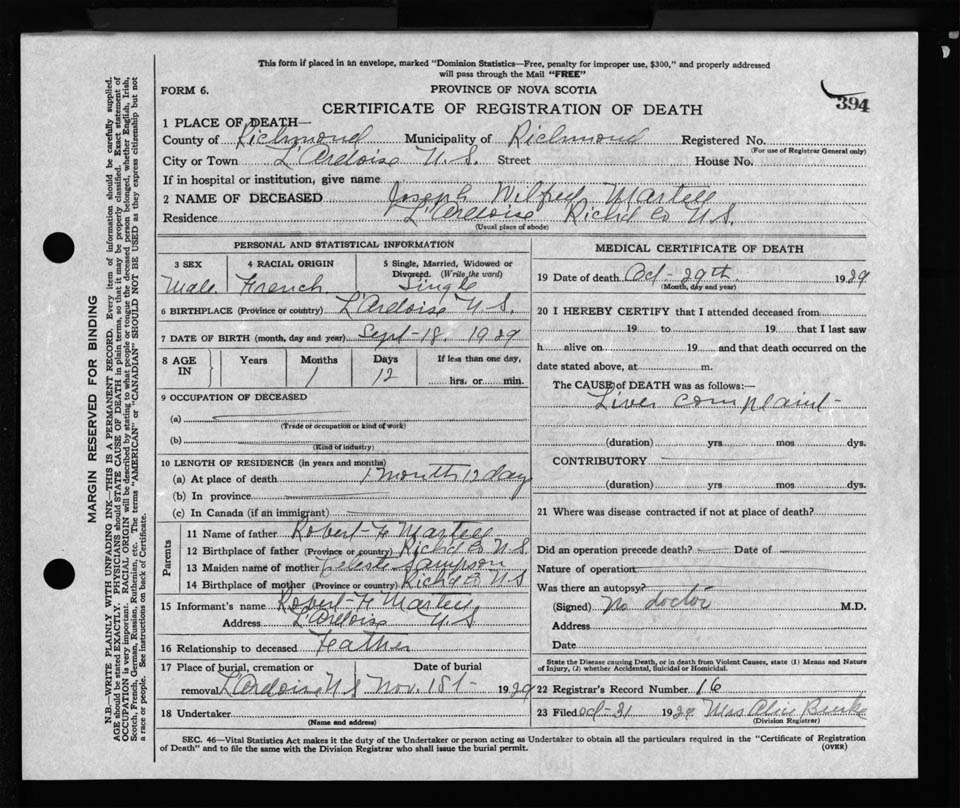 This form if placed in an envelope, marked "Dominion Statistics—Free, penalty for improper use, $300," and properly addressed
will pass through the Mail "FREE"
FORM 6.
PROVINCE OF NOVA SCOTIA
394
CERTIFICATE OF REGISTRATION OF DEATH
1 PLACE OF DEATH—
County of Richmond Municipality of Richmond Registered No.
(For use of Registrar General only)
City or Town L'Ardoise N.S. Street House No.
If in hospital or institution, give name
2 NAME OF DECEASED Joseph Wilfred Martell
Residence L'Ardoise Rich'd Co N.S.
(Usual place of abode)
PERSONAL AND STATISTICAL INFORMATION
3 SEX 4 RACIAL ORIGIN 5 Single, Married, Widowed or
Divorced. (Write the word)
Male French Single
6 BIRTHPLACE (Province or country) L'Ardoise N.S.
7 DATE OF BIRTH (month, day and year) Sept-18, 1929
8 AGE IN Years Months Days If less than one day,
1 12 hrs. or min.
9 OCCUPATION OF DECEASED
(a)
(Trade or occupation or kind of work)
(b)
(Kind of industry)
10 LENGTH OF RESIDENCE (in years and months)
(a) At place of death 1 month 12 day
(b) In province
(c) In Canada (if an immigrant)
Parents
11 Name of father Robert F Martell
12 Birthplace of father (Province or country) Rich'd Co N.S.
13 Maiden name of mother Celeste Sampson
14 Birthplace of mother (Province or country) Rich'd Co N S
15 Informant's name Robert F Martell
Address L'Ardoise N S
16 Relationship to deceased Father
17 Place of burial, cremation or Date of burial
removal L'Ardoise N S Nov. 1st- 1929
18 Undertaker
(Name and address)
MEDICAL CERTIFICATE OF DEATH
19 Date of death Oct-29th 1929
(Month, day and year)
20 I HEREBY CERTIFY that I attended deceased from
19 to 19 that I last saw
h alive on 19 and that death occurred on the
date stated above, at m.
The CAUSE of DEATH was as follows:—
Liver complaint-
(duration) yrs. mos dys.
CONTRIBUTORY
(duration) yrs. mos. dys.
21 Where was disease contracted if not at place of death?
Did an operation precede death? Date of
Nature of operation
Was there an autopsy?
(Signed) No doctor M.D.
Address
Date
State the Disease causing Death, or in death from Violent Causes, state (1) Means and Nature
of Injury, (2) whether Accidental, Suicidal or Homicidal.
22 Registrar's Record Number 16
23 Filed Oct-31 1929 Mrs Alice Burke
(Division Registrar)
SEC. 46—Vital Statistics Act makes it the duty of the Undertaker or person acting as Undertaker to obtain all the particulars required in the "Certificate of Registration
of Death" and to file the same with the Division Registrar who shall issue the burial permit.
(OVER)
MARGIN RESERVED FOR BINDING
N.B.—WRITE PLAINLY WITH UNFADING INK—THIS IS A PERMANENT RECORD. Every item of information should be carefully supplied.
AGE should be stated EXACTLY. PHYSICIANS should STATE CAUSE OF DEATH in plain terms, so that it may be properly classified. Exact statement of
OCCUPATION is very important. RACIAL ORIGIN will be described by stating to what people or tongue the deceased person belonged, whether English, Irish,
Scotch, French, German, Russian, Ruthenian, etc. The terms "AMERICAN" or "CANADIAN" SHOULD NOT BE USED as they express citizenship but not
a race or people. See instructions on back of Certificate.